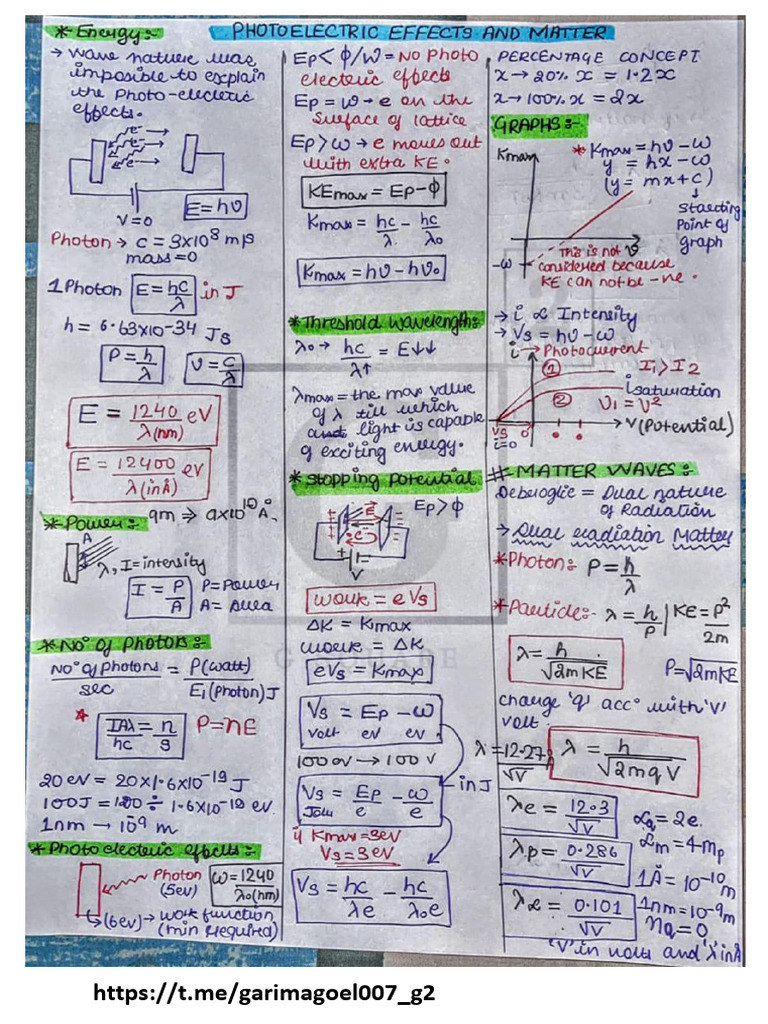 PHOTOELECTRIC EFFECTS AND MATTER
* Energy:-
→ Wave nature was
imposible to explain
the Photo-electeric
effects.
e-
e-
e-
V=0
E=hν
Photon → C = 3×10⁸ m/s
mass=0
1 Photon E=hc/λ in J
h = 6.63×10-34 Js
P=h/λ ν=c/λ
E = 1240/λ(nm) eV
E = 12400/λ(in Å) eV
* Power:- 9m ⇒ 9×10¹⁰ Å
A
λ, I=intensity
I = P/A P=Power
A= Area
* No° of Photons:-
No° of photons/sec = P(watt)/E₁(Photon)J
* IAλ/hc = n/s P=nE
20 eV = 20×1.6×10-19 J
100J = 100 ÷ 1.6×10-19 ev
1nm → 10⁻⁹ m
* Photo electeric effects:-
Photon
(5ev)
ω=1240/λ₀(nm)
(6ev) → work function
(min required)
Ep< φ/ω = NO Photo
electeric effects
Ep = ω → e on the
Surface of lattice
Ep>ω → e moves out
with extra KE.
KEmax = Ep-φ
Kmax = hc/λ - hc/λ₀
Kmax = hν-hν₀
* Threshold wavelength:-
λ₀ → hc/λ↑ = E↓↓
λmax = the max value
of λ till which
light is capable
of exciting energy.
* Stopping potential
E
e
Ep>φ
V
work = eVs
ΔK = Kmax
work = ΔK
eVs = Kmax
Vs = Ep - ω
volt ev ev
100 ev → 100 V
Vs = Ep/e - ω/e → in J
Joul
if Kmax = 3eV
Vs = 3eV
Vs = hc/λe - hc/λ₀e
PERCENTAGE CONCEPT
x → 20% x = 1.2x
x → 100% x = 2x
GRAPHS:-
Kmax
* Kmax = hν-ω
y = hx-ω
(y = mx+c)
↓
starting
Point of
graph
ν
-ω
This is not
considered because
KE can not be -ne.
→ i ∝ Intensity
→ Vs = hν-ω
i → Photocurrent
① I₁>I₂
i saturation
② ν₁ = ν²
V(Potential)
Vs 0
i=0
# MATTER WAVES:-
Deberoglie = Dual nature
of Radiation
→ Dual radiation Matter
* Photon:- P=h/λ
* Particle:- λ = h/P | KE = P²/2m
λ = h/√2mKE P=√2mKE
change 'q' acc° with 'V'
volt.
λ = 12.27/√V Å λ = h/√2mqV
λe = 12.3/√V
λp = 0.286/√V
λα = 0.101/√V
αq = 2e.
αm = 4mp
1Å = 10⁻¹⁰ m
1nm = 10-9m
nq = 0
'V' in volts and 'λ' in Å
https://t.me/garimagoel007_g2